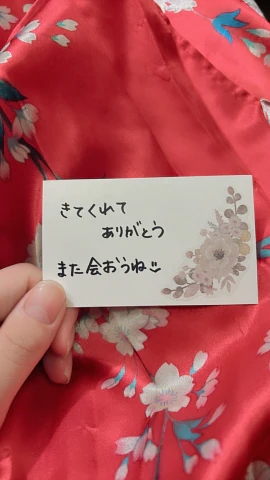 きてくれて
ありがとう
また会おうね